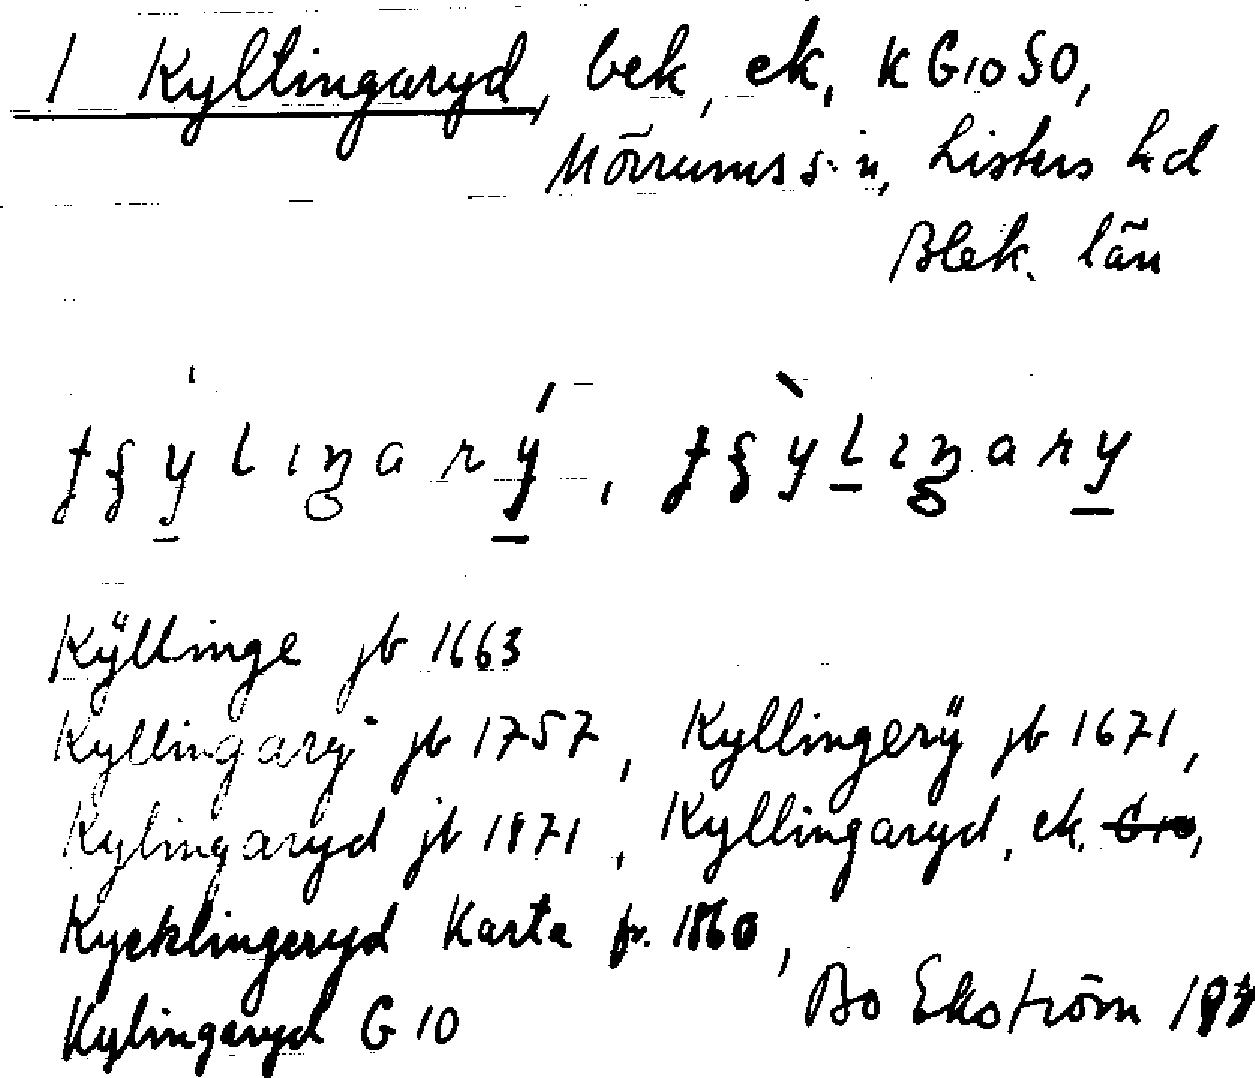 1 Kyllingaryd, bek, ek, KG1050,
Mörrums sn, Listers hd
Blek. län
Kÿllinge jb 1663
Kyllingary jb 1757, Kyllingerÿ jb 1671,
Kylingaryd jb 1871, Kyllingaryd, ek.
Kycklingeryd Karta fr. 1860,
Kylingaryd G 10
Bo Ekström